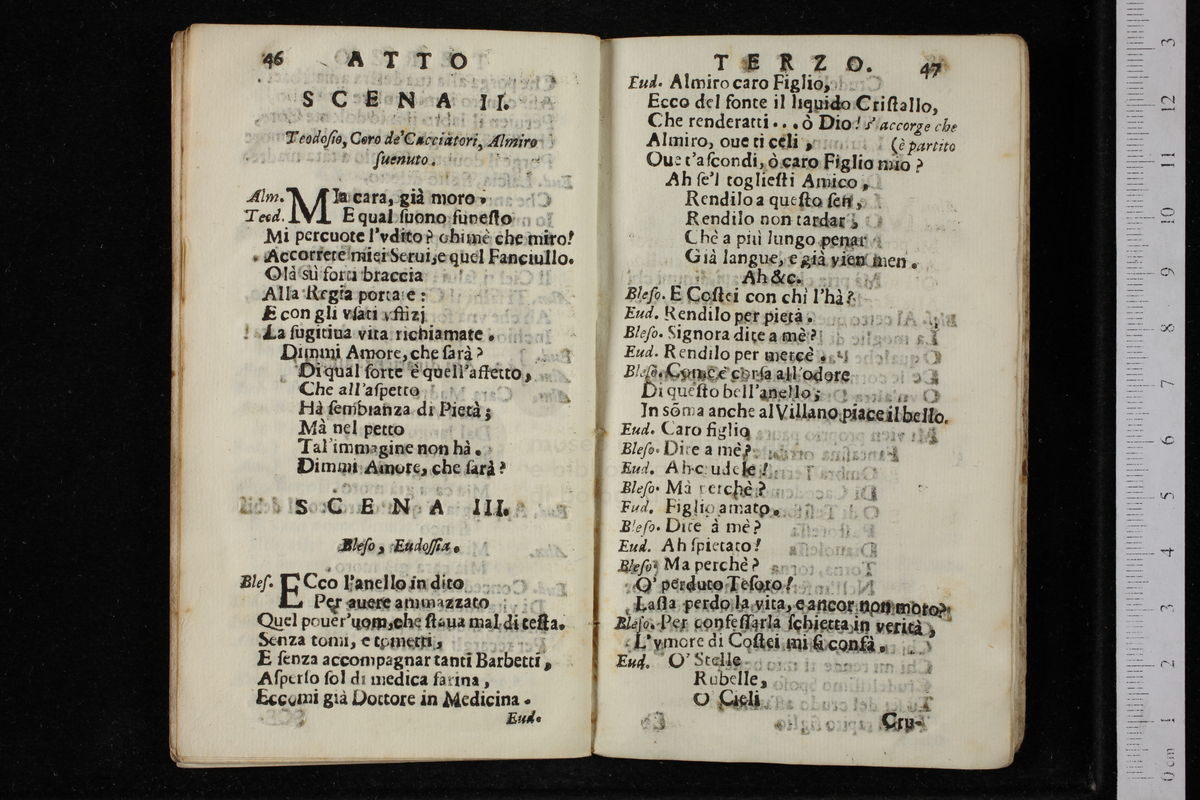 46 ATTO
SCENA II.
Teodosio, Coro de' Cacciatori, Almiro
suenuto.
Alm. MIa cara, già moro.
Teod. E qual suono funesto
Mi percuote l'vdito? ohimè che miro!
Accorrete miei Serui, e quel Fanciullo.
Olà sù forti braccia
Alla Regia portate:
E con gli vsati vffizj
La fugitiua vita richiamate.
Dimmi Amore, che sarà?
Di qual sorte è quell'affetto,
Che all'aspetto
Hà sembianza di Pietà;
Mà nel petto
Tal'immagine non hà.
Dimmi Amore, che sarà?
SCENA III.
Bleso, Eudossia.
Bles. ECco l'anello in dito
Per auere ammazzato
Quel pouer'uom, che staua mal di testa.
Senza tomi, e tometti,
E senza accompagnar tanti Barbetti,
Asperso sol di medica farina,
Eccomi già Dottore in Medicina.
Eud.
TERZO. 47
Eud. Almiro caro Figlio,
Ecco del fonte il liquido Cristallo,
Che renderatti... ò Dio! s'accorge che
Almiro, oue ti celi, (è partito
Oue t'ascondi, ò caro Figlio mio?
Ah se'l togliesti Amico,
Rendilo a questo sen,
Rendilo non tardar,
Chè a più lungo penar
Già langue, e già vien men.
Ah &c.
Bleso. E Costei con chi l'hà?
Eud. Rendilo per pietà.
Bleso. Signora dite a mè?
Eud. Rendilo per mercè.
Bleso. Come è corsa all'odore
Di questo bell'anello;
In sōma anche al Villano piace il bello.
Eud. Caro figlio
Bleso. Dite a mè?
Eud. Ah crudele!
Bleso. Mà perchè?
Eud. Figlio amato.
Bleso. Dite à mè?
Eud. Ah spietato!
Bleso. Ma perchè?
O' perduto Tesoro!
Lassa perdo la vita, e ancor non moro?
Bleso. Per confessarla schietta in verità,
L'vmore di Costei mi si confà.
Eud. O' Stelle
Rubelle,
O Cieli
Cru-
0 cm 1 2 3 4 5 6 7 8 9 10 11 12 3